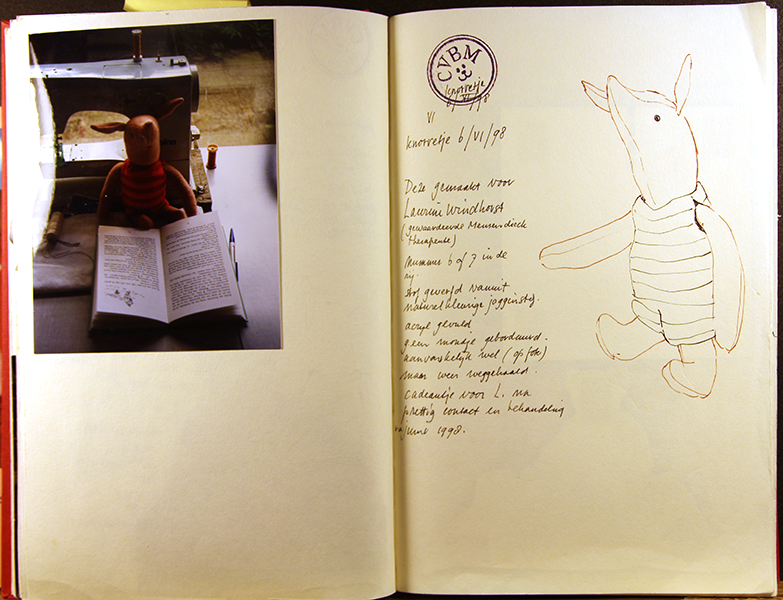 CVBM
knorretje
6/VI/98
VI
knorretje 6/VI/98
Deze gemaakt voor
Laurine Windhorst
(gewaardeerde Mensendieck
therapeute)
Nummer 6 of 7 in de
rij.
stof geverfd vanuit
naturelkleurige joggingstof.
acryl gevuld
geen mondje geborduurd.
aanvankelijk wel (op foto)
maar weer weggehaald.
cadeautje voor L. na
prettig contact en behandeling
juni 1998.